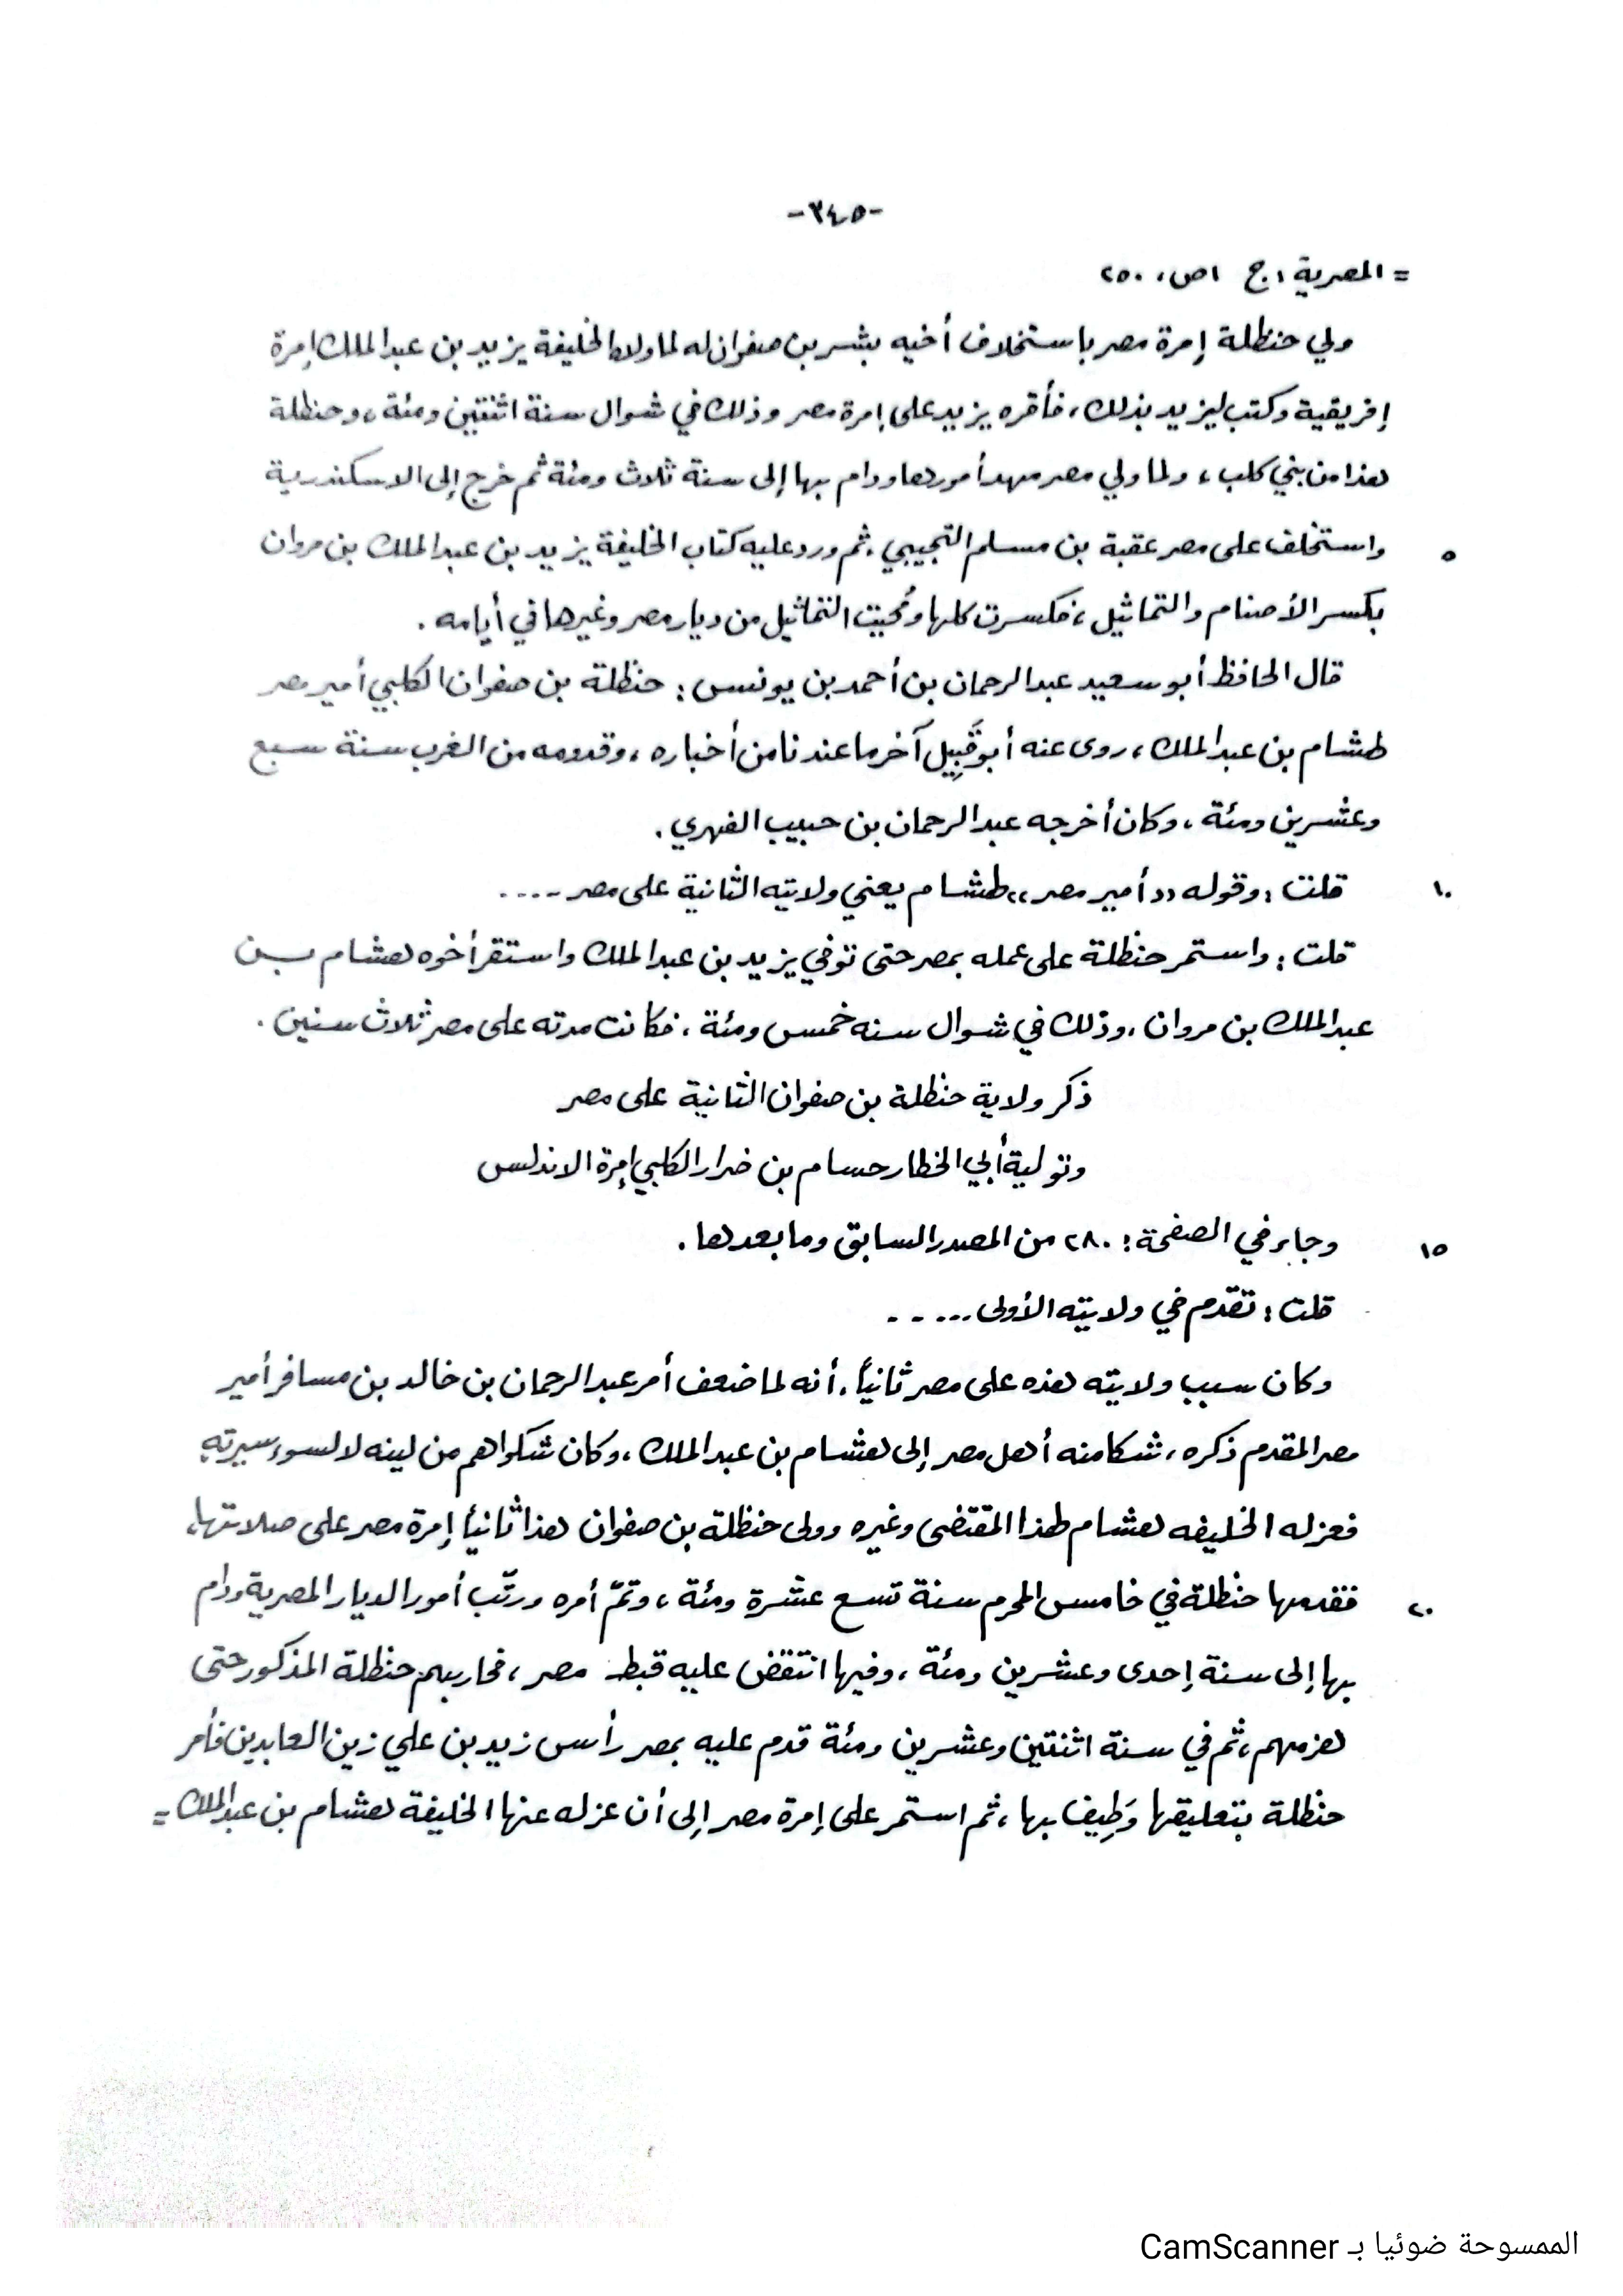 -٣٤٥-
= المصرية، ج ١ ص، ٢٥٠
ولي حنظلة إمرة مصر باستخلاف أخيه بشر بن صفوان له لما ولاه الخليفة يزيد بن عبد الملك إمرة
إفريقية وكتب ليزيد بذلك، فأقره يزيد على إمرة مصر وذلك في شوال سنة اثنتين ومئة، وحنظلة
هذا من بني كلب، ولما ولي مصر مهد أمورها ودام بها إلى سنة ثلاث ومئة ثم خرج إلى الاسكندرية
٥ واستخلف على مصر عقبة بن مسلم التجيبي. ثم ورد عليه كتاب الخليفة يزيد بن عبد الملك بن مروان
بكسر الأصنام والتماثيل، فكسرت كلها ومُحيت التماثيل من ديار مصر وغيرها في أيامه.
قال الحافظ أبو سعيد عبد الرحمان بن أحمد بن يونس: حنظلة بن صفوان الكلبي أمير مصر
لهشام بن عبد الملك، روى عنه أبو قَبِيل آخر ما عندنا من أخباره، وقدومه من الغرب سنة سبع
وعشرين ومئة، وكان أخرجه عبد الرحمان بن حبيب الفهري.
١٠ قلت: وقوله «أمير مصر» لهشام يعني ولايته الثانية على مصر ....
قلت: واستمر حنظلة على عمله بمصر حتى توفي يزيد بن عبد الملك واستقر أخوه هشام بن
عبد الملك بن مروان. وذلك في شوال سنه خمس ومئة، فكانت مدته على مصر ثلاث سنين.
ذكر ولاية حنظلة بن صفوان الثانية على مصر
وتولية أبي الخطار حسام بن ضرار الكلبي إمرة الاندلس
١٥ وجاء في الصفحة: ٢٨٠ من المصدر السابق وما بعدها.
قلت: تقدم في ولايته الأولى .....
وكان سبب ولايته هذه على مصر ثانياً. أنه لما ضعف أمر عبد الرحمان بن خالد بن مسافر أمير
مصر المقدم ذكره، شكا منه أهل مصر إلى هشام بن عبد الملك، وكان شكواهم من لينه لا لسوء سيرته
فعزله الخليفه هشام لهذا المقتضى وغيره وولى حنظلة بن صفوان هذا ثانياً إمرة مصر على صلاتها،
٢٠ فقدمها حنظلة في خامس المحرم سنة تسع عشرة ومئة، وتمّ أمره ورتّب أمور الديار المصرية ودام
بها إلى سنة إحدى وعشرين ومئة، وفيها انتقض عليه قبط مصر، فحاربهم حنظلة المذكور حتى
هزمهم، ثم في سنة اثنتين وعشرين ومئة قدم عليه بمصر رأس زيد بن علي زين العابدين فأمر
حنظلة بتعليقها وَطِيف بها، ثم استمر على إمرة مصر إلى أن عزله عنها الخليفة هشام بن عبد الملك =
الممسوحة ضوئيا بـ CamScanner